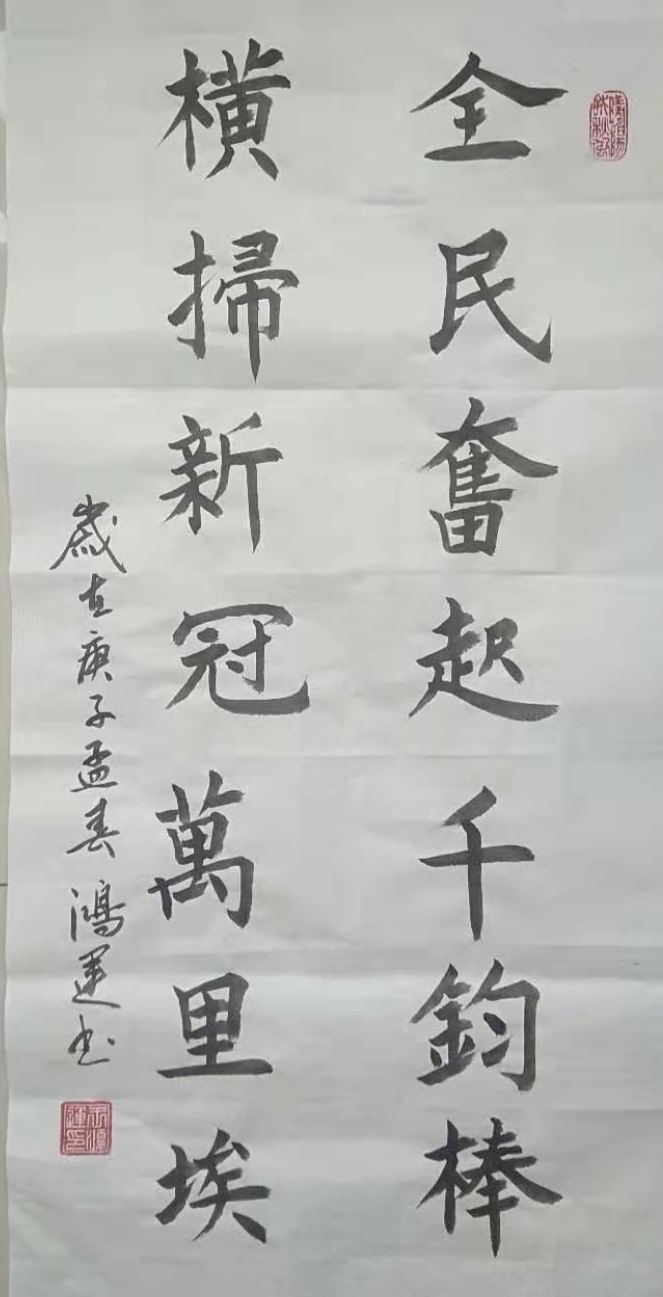 全民奮起千鈞棒
橫掃新冠萬里埃
歲在庚子孟春 鴻運书